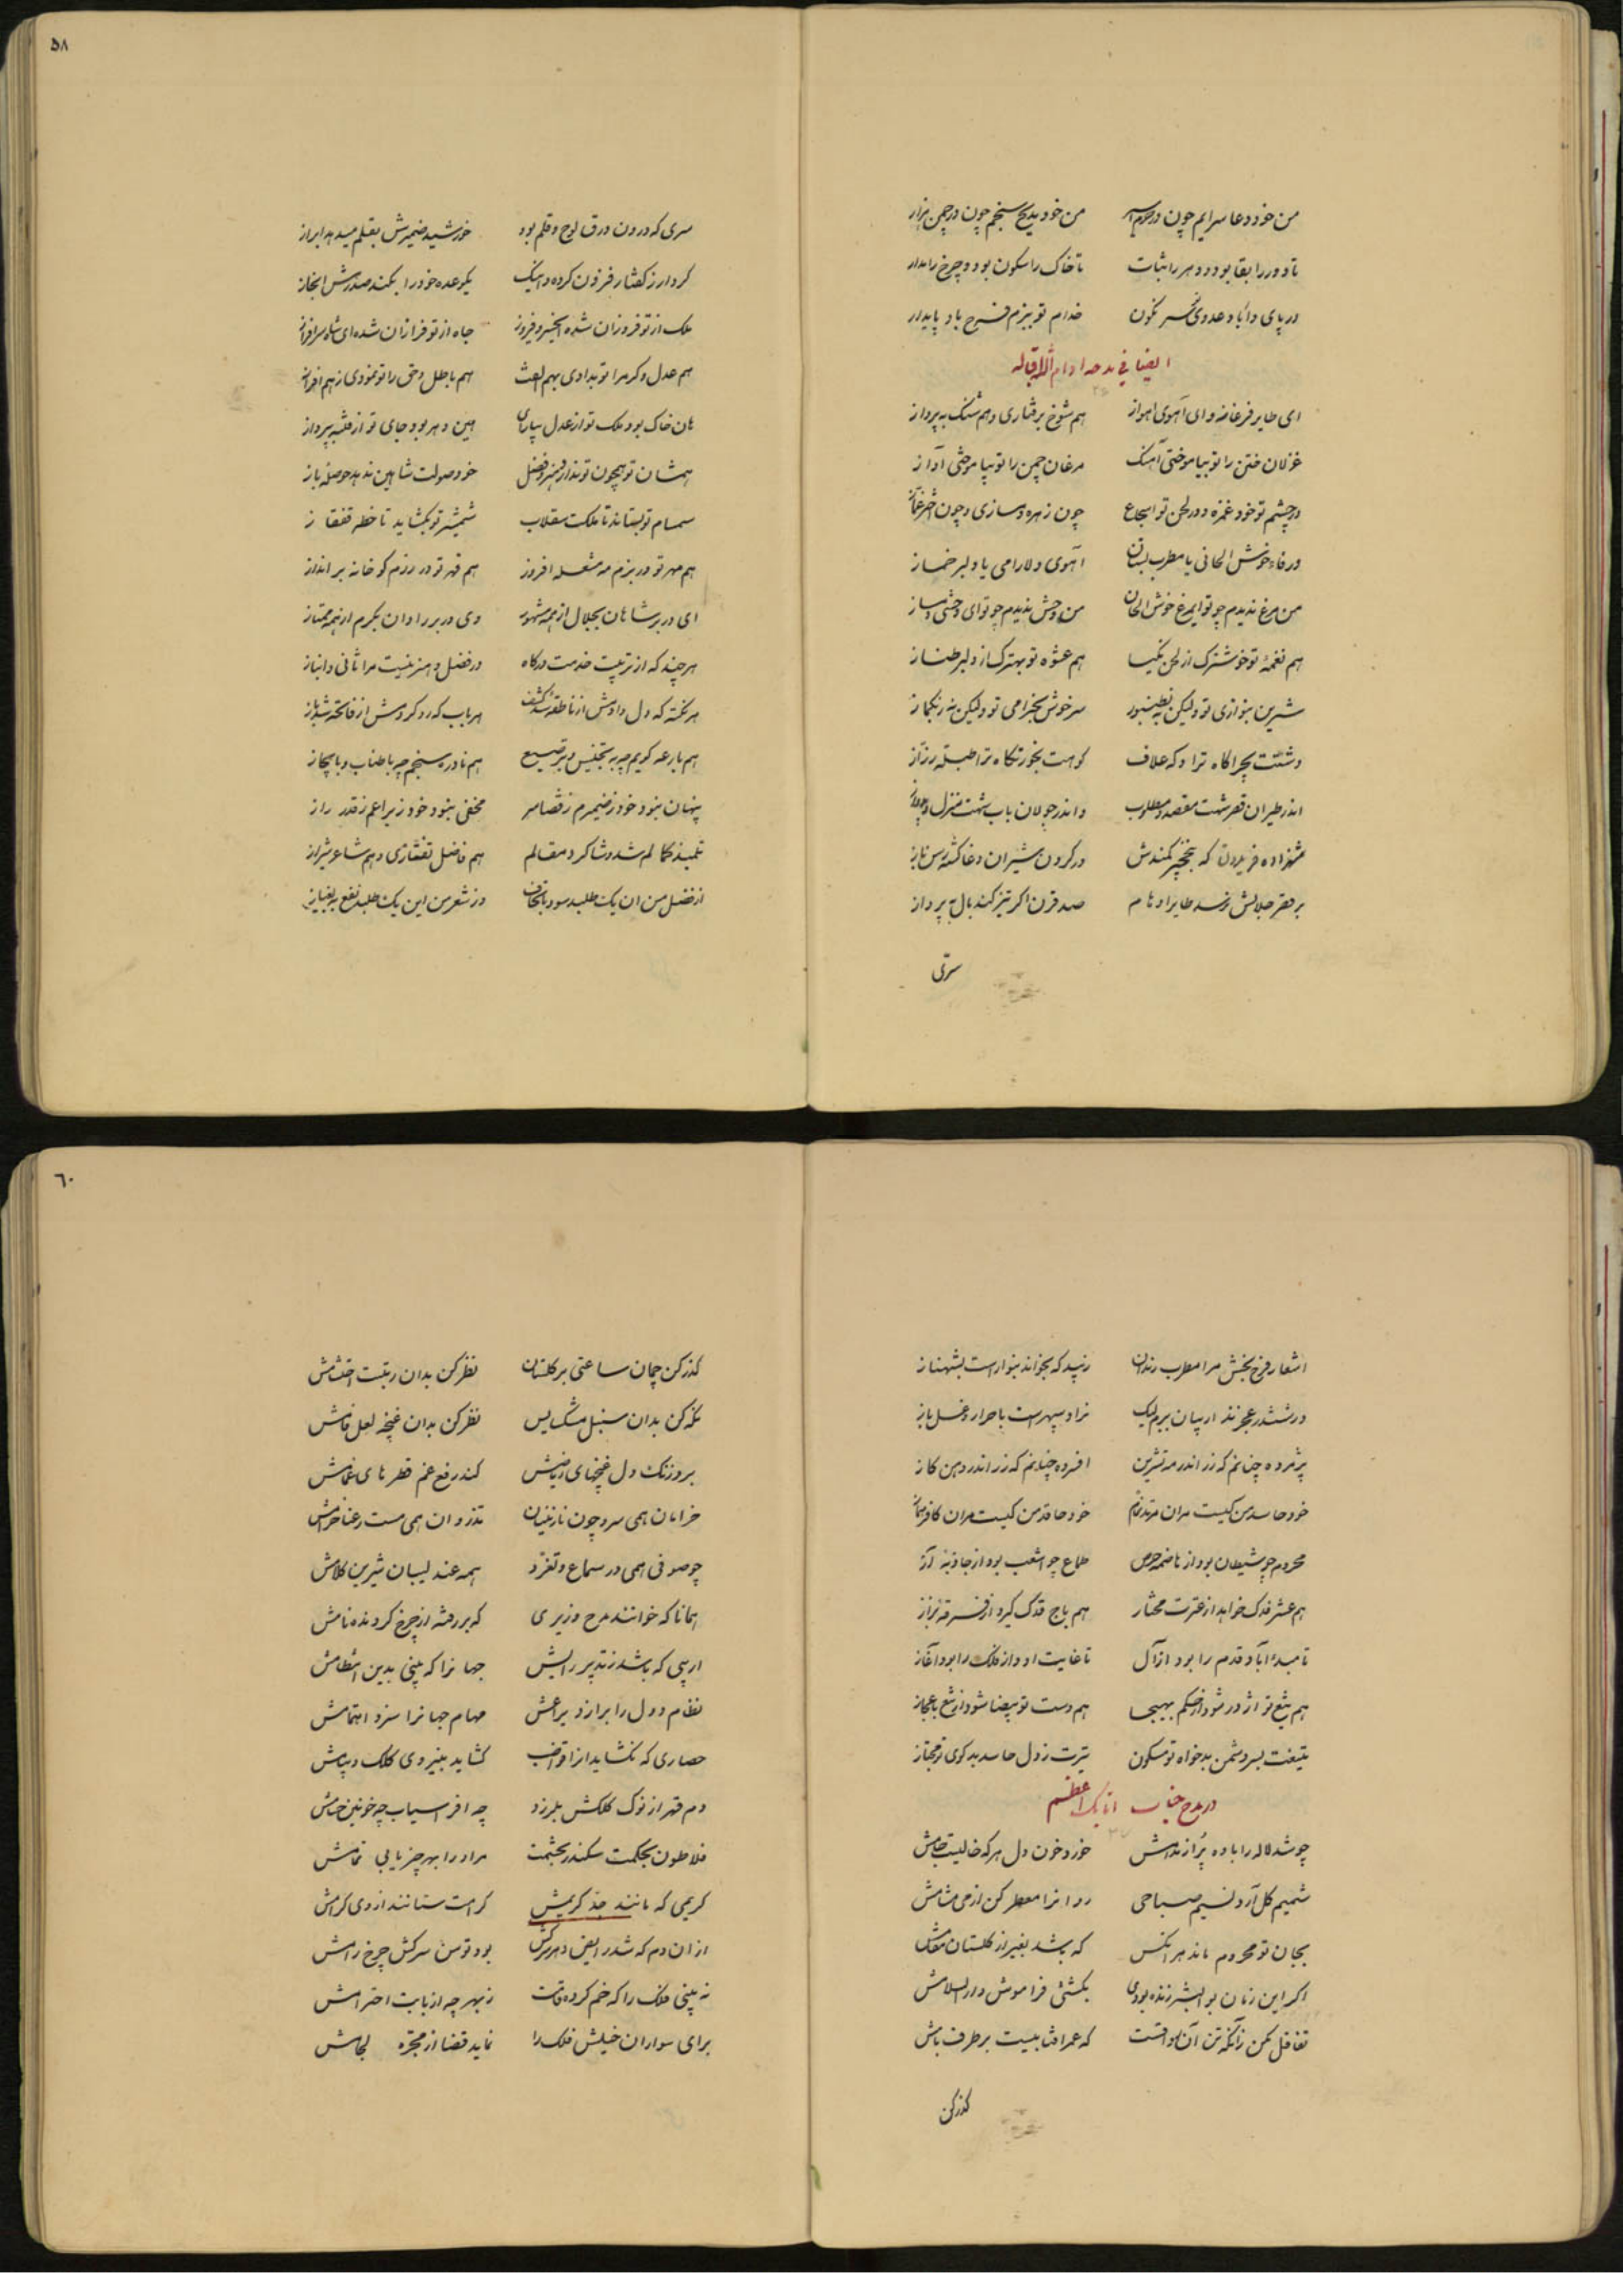 ۵۸
من خود دعا سرایم چون در حرم
من خود مدیح سنجم چون در چمن هزار
تا دور را بقا بود و دهر را ثبات
تا خاک را سکون بود و چرخ را مدار
در پای دار باد عدوی سر نگون
خدام تو ببزم فرح باد پایدار
ایضا فی مدحه ادام الله اقباله
ای طایر فرغانه و ای آهوی اهواز
هم شوخ برفتاری و هم شنک به پرواز
غزلان ختن را تو بیاموختی آهنک
مرغان چمن را تو بیاموختی آواز
در چشم تو خود غمزه و در لحن تو اسجاع
چون زهره دمسازی و چون
ورقاء خوش الحانی یا مطرب بستان
آهوی دلارامی یا دلبر خماز
من مرغ ندیدم چو تو ای مرغ خوش الحان
من وحش ندیدم چو تو ای وحشی دمساز
هم نغمهٔ تو خوشترک از لحن نکیسا
هم عشوه تو بهترک از دلبر طناز
شیرین بنوازی تو ولیکن نه بطنبور
سرخوش بخرامی تو ولیکن نه ز بکماز
دشتت بچراکاه ترا دکه علاف
کوهت بخورشکاه ترا طبله رزاز
اندر طیران قصر شهت مقصد و مطلوب
واندر جولان باب شهت منزل و
شهزاده فریدون که بنخجیر کمندش
در کردن شیران دغا کشته رسن باز
بر قصر جلالش نرسد طایر اوهام
صد قرن اکر تیز کند بال به پرواز
سری
سری که درون ورق لوح و قلم بود
خورشید ضمیرش بقلم میدهد ابراز
کردار ز کفتار فزون کرده و اینک
یک وعده خود را بکند صدرش انجاز
ملک از تو فروزان شده ای فیروز
جاه از تو فرازان شده ای شاه سرافراز
هم عدل و کرم را تو بدادی بهم الفت
هم باطل و حق را تو نمودی ز هم افراز
هان خاک بود ملک تو از عدل بیارای
هین دهر بود جای تو از فتنه بپرداز
همشان تو همچون تو ندارد هنر و فضل
خود صولت شاهین ندهد حوصله باز
صمصام تو بستاند تا مملکت سقلاب
شمشیر تو بکشاید تا خطه قفقاز
هم مهر تو در بزم مه مشعله افروز
هم قهر تو در رزم کو خانه برانداز
ای در بر شاهان بجلال از همه مشهور
وی در بر رادان بکرم از همه ممتاز
هر چند که از تربیت خدمت درکاه
در فضل و هنر نیست مرا ثانی و انباز
هر نکته که دل دادش از ناطقه شد کشف
هر باب که رد کردش از فاتحه شد باز
هم بارعه کویم چه به تجنیس و به ترصیع
هم نادره سنجم چه باطناب و بایجاز
پنهان نبود خود ز ضمیرم ز قضا سر
مخفی نبود خود ز یراعم ز قدر راز
تلمیذ کمالم شد و شاکرد مقالم
هم فاضل تفتازی و هم شاعر شیراز
از فضل من آن یک طلبد سود
وز شعر من این یک طلبد نفع
۶۰
اشعار فرح بخش مرا مطرب رندان
زیبد که بخواند بنوا راست بشهناز
در ششدر عجزند ادیبان برم لیک
نراد سپهر است باحرار دغل باز
پژمرده چنانم که رز اندر مه تشرین
افسرده چنانم که زر اندر دهن کاز
خود حاسد من کیست مران مرتد نمام
خود حاقد من کیست مران کافر
محروم چو شیطان بود از هاضمه حرص
طماع چو اشعب بود از جاذبه آز
هم عشر فدک خواهد از عترت مختار
هم باج فدک کیرد از فرقه بزاز
تا مبدء آباد قدم را بود از آل
تا غایت ادوار فلک را بود آغاز
هم تیغ تو اژدر شود از حکم بهیجا
هم دست تو بیضا شود از تیغ باعجاز
تیغت بسر دشمن بدخواه تو مسکون
تیرت ز دل حاسد بدکوی تو مجتاز
در مدح جناب اتابک اعظم
چو شد لاله را باده پر از مدامش
خورد خون دل هر که خالیست جامش
شمیم کل آرد نسیم صباحی
روانرا معطر کن از می مشامش
بجان تو محروم ماند هر انکس
که باشد بغیر از کلستان مقامش
اکر این زمان بوالبشر زنده بودی
بکشتی فراموش دارالسلامش
تغافل مکن زآنکه تن آن
که عمر افتابیست بر طرف بامش
کذر کن
کذر کن چمان ساعتی بر کلستان
نظر کن بدان رتبت احتشامش
نکه کن بدان سنبل مشک بیس
نظر کن بدان غنچه لعل فامش
برد زنک دل غنچهای ریاضیش
کند رفع غم قطرهای غمامش
خرامان همی سرو چون نازنینان
تذروان همی مست رعنا خرامش
چو صوفی همی در سماع و تغرد
همه عندلیبان شیرین کلامش
همانا که خوانند مدح وزیری
که بر رفته از چرخ کردنده نامش
اریبی که باشد ز تدبیر رایش
جهانرا که بینی بدین انتظامش
نظام دول را برازد یراعش
مهام جهانرا سزد اهتمامش
حصاری که نکشاید انرا قواضب
کشاید بنیروی کلک و پیامش
دم قهر از نوک کلکش بلرزد
چه افراسیاب چه خونین حسامش
فلاطون بحکمت سکندر بحشمت
مر او را بهر چیز یابی تمامش
کریمی که مانند جد کریمش
کرامت ستانند از وی کرامش
از ان دم که شد رایض دهر سرکش
بود توسن سرکش چرخ رامش
نه بینی فلک را که خم کرده قامت
ز بهر چه از بابت احترامش
برای سواران خیلش فلک را
نماید قضا از مجره لجامش